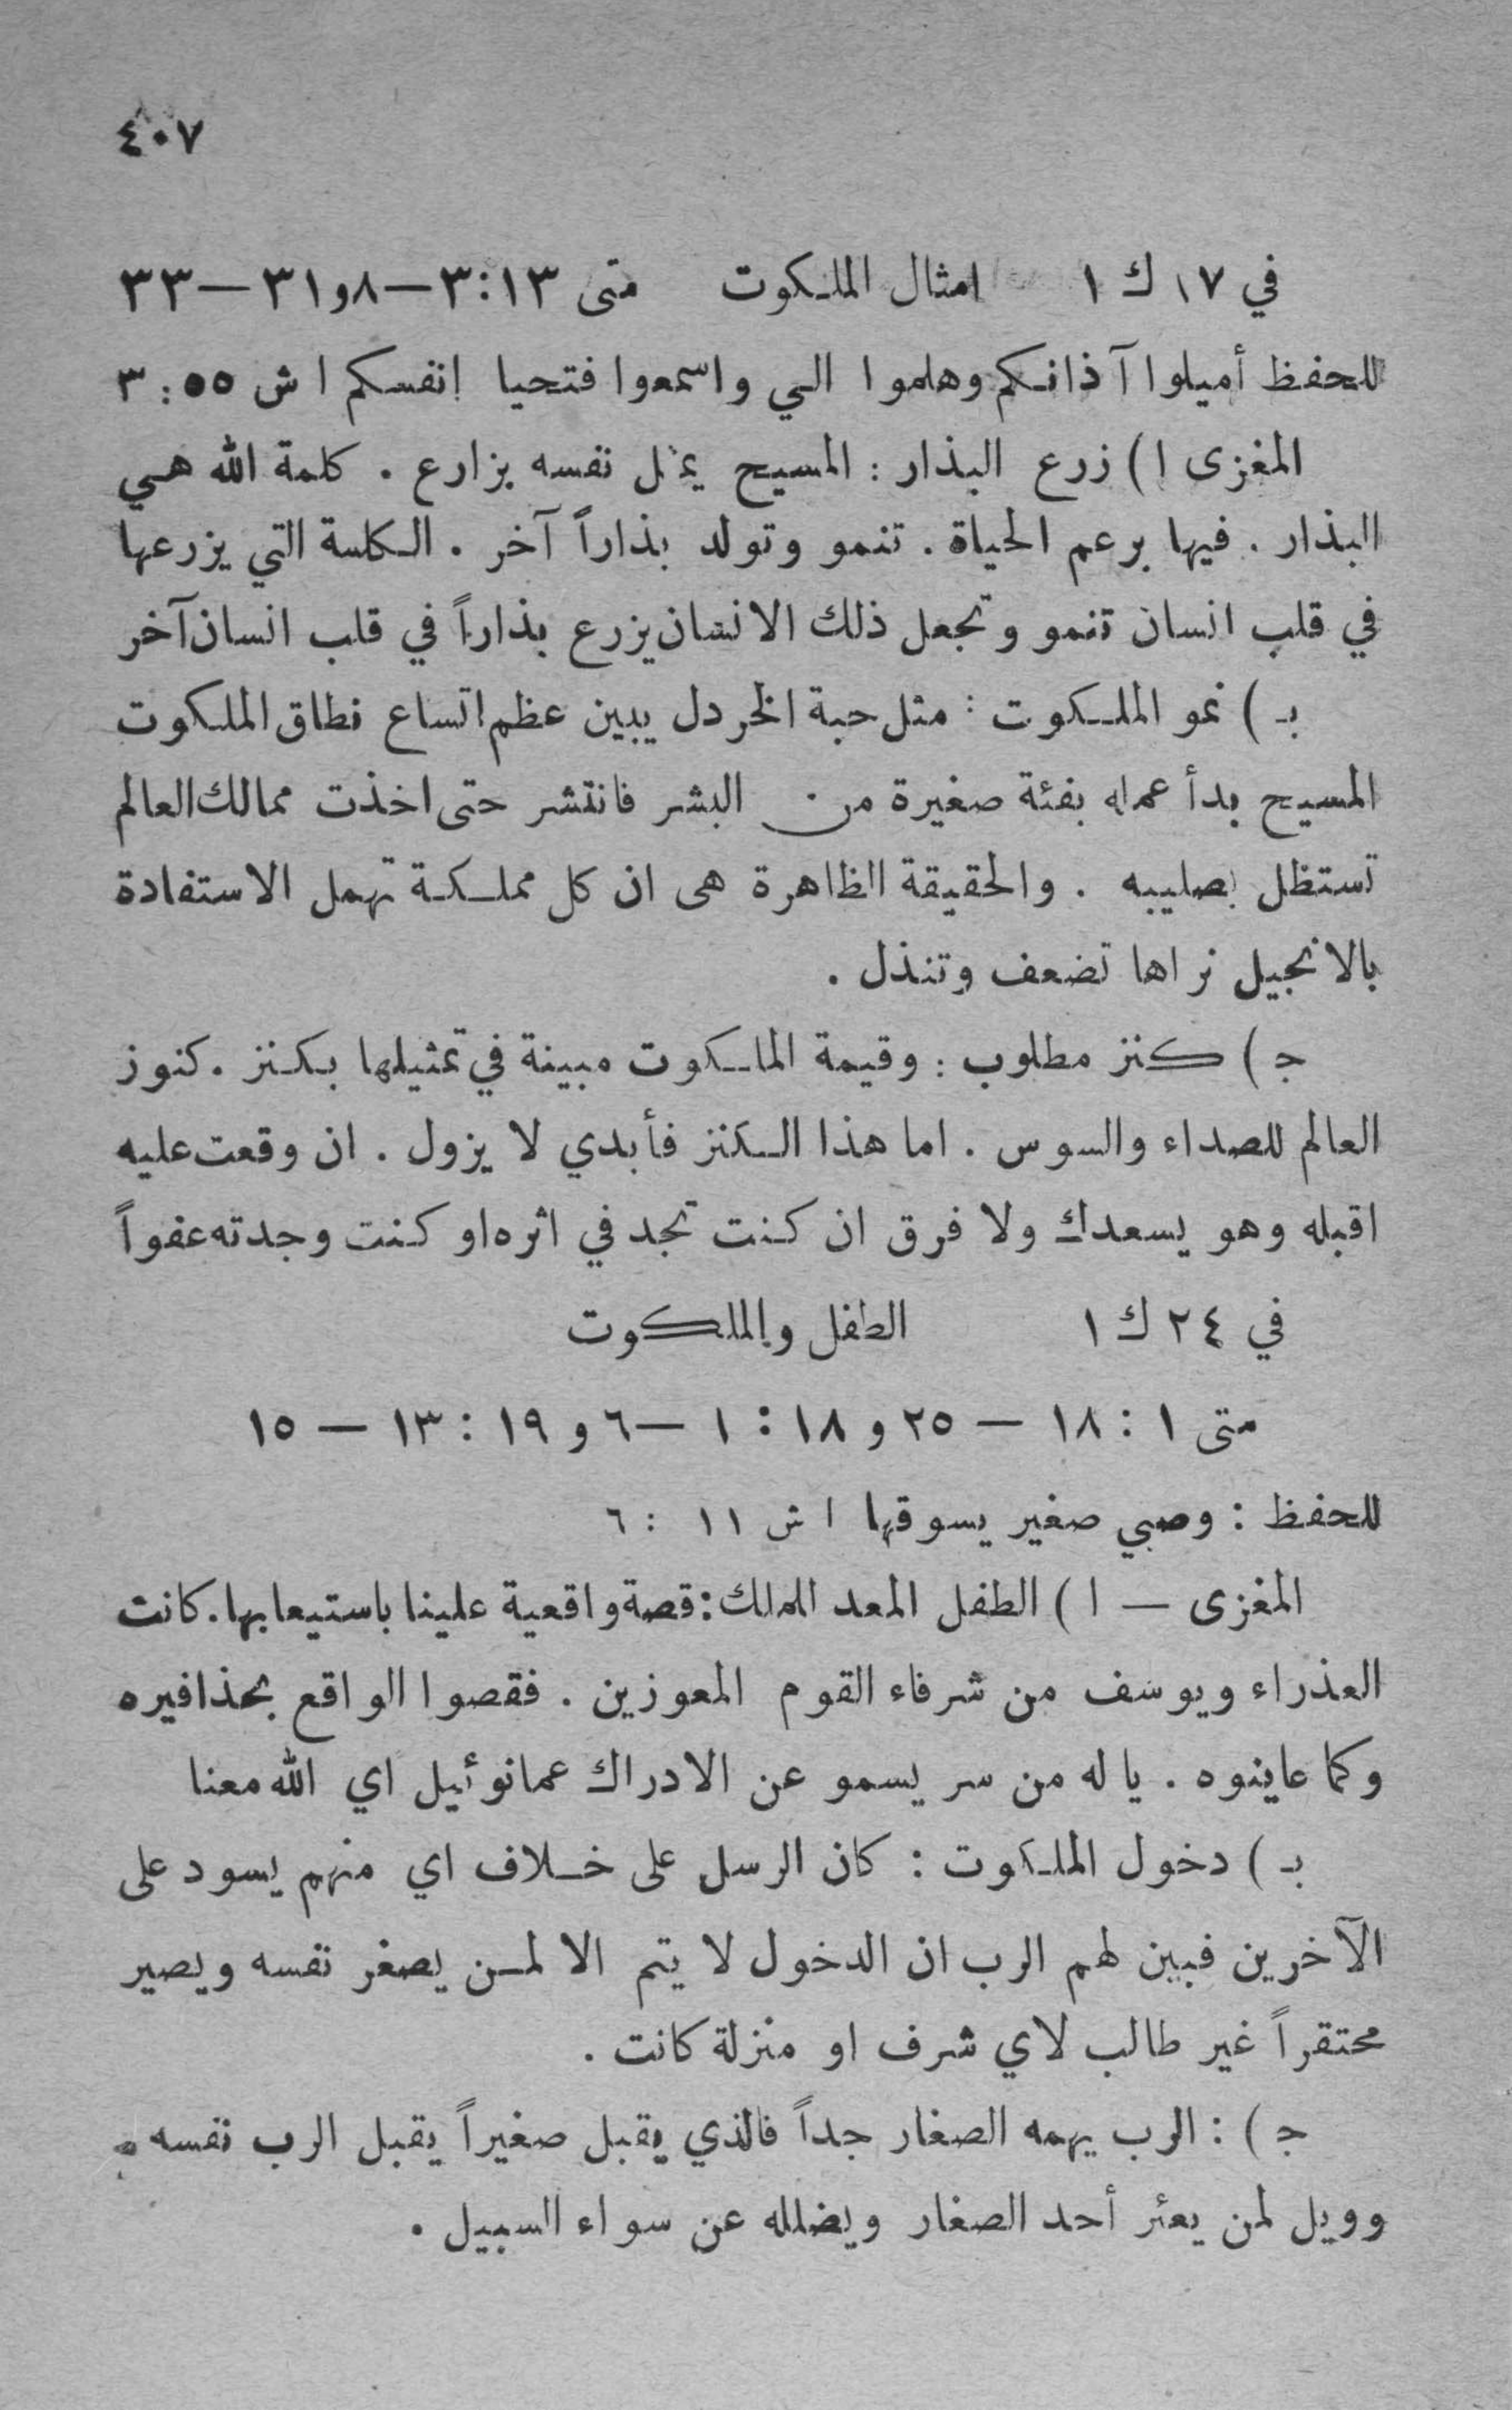 ٤٠٧
في ١٧ ك ١ امثال الملكوت متى ١٣:٣—٨و٣١—٣٣
للحفظ أميلوا آذانكم وهلموا الي واسمعوا فتحيا انفسكم اش ٥٥ : ٣
المغزى ا) زرع البذار : المسيح يمثل نفسه بزارع . كلمة الله هي
البذار . فيها برعم الحياة . تنمو وتولد بذاراً آخر . الكلمة التي يزرعها
في قلب انسان تنمو وتجعل ذلك الانسان يزرع بذاراً في قلب انسان آخر
بـ ) نمو الملكوت : مثل حبة الخردل يبين عظم اتساع نطاق الملكوت
المسيح بدأ عمله بفئة صغيرة من البشر فانتشر حتى اخذت ممالك العالم
تستظل بصليبه . والحقيقة الظاهرة هى ان كل مملكة تهمل الاستفادة
بالانجيل نراها تضعف وتنذل .
جـ ) كنز مطلوب : وقيمة الملكوت مبينة في تمثيلها بكنز . كنوز
العالم للصداء والسوس . اما هذا الكنز فأبدي لا يزول . ان وقعت عليه
اقبله وهو يسعدك ولا فرق ان كنت تجد في اثره او كنت وجدته عفواً
في ٢٤ ك ١ الطفل والملكوت
متى ١ : ١٨ — ٢٥ و ١٨ : ١ —٦ و ١٩ : ١٣ — ١٥
للحفظ : وصبي صغير يسوقها اش ١١ : ٦
المغزى — ا ) الطفل المعد للملك : قصة واقعية علينا باستيعابها . كانت
العذراء ويوسف من شرفاء القوم المعوزين . فقصوا الواقع بحذافيره
وكما عاينوه . يا له من سر يسمو عن الادراك عمانوئيل اي الله معنا
بـ ) دخول الملكوت : كان الرسل على خلاف اي منهم يسود على
الآخرين فبين لهم الرب ان الدخول لا يتم الا لمن يصغر نفسه ويصير
محتقراً غير طالب لاي شرف او منزلة كانت .
جـ ) : الرب يهمه الصغار جداً فالذي يقبل صغيراً يقبل الرب نفسه .
وويل لمن يعثر أحد الصغار ويضلله عن سواء السبيل .